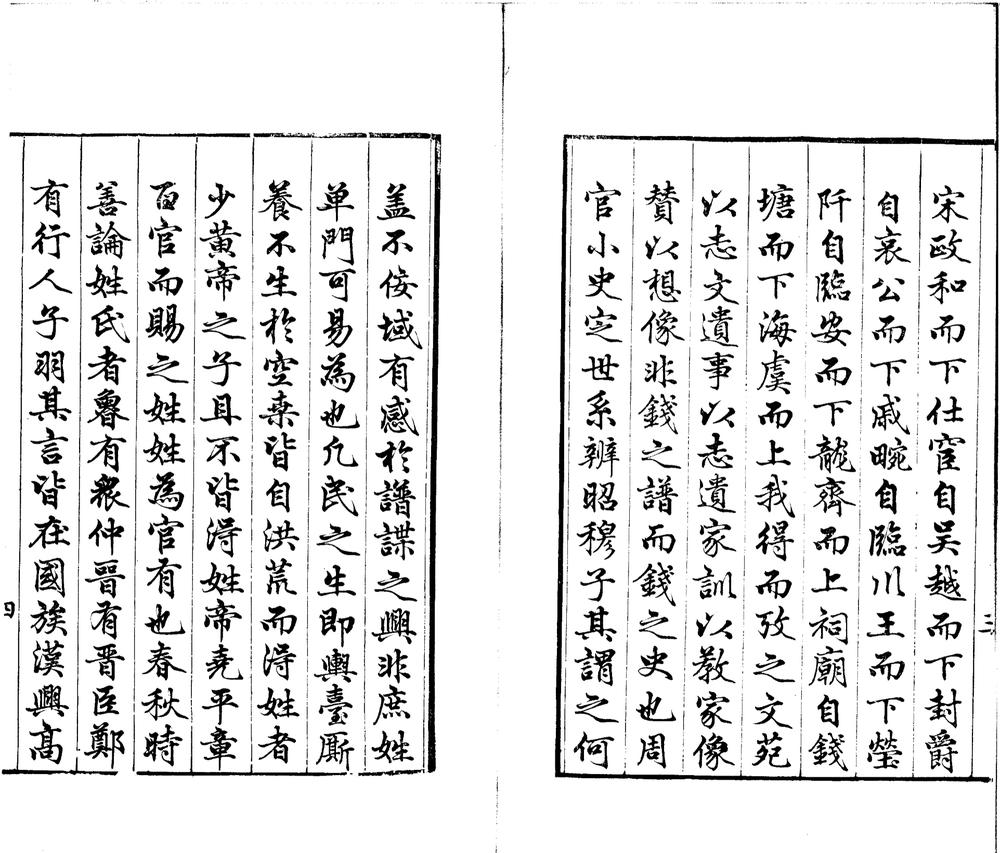 宋政和而下仕宦自吳越而下封爵
自哀公而下戚畹自臨川王而下塋
阡自臨安而下龍齊而上祠廟自錢
塘而下海虞而上我得而攷之文苑
以志文遺事以志遺家訓以教家像
贊以想像非錢之譜而錢之史也周
官小史定世系辨昭穆子其謂之何
蓋不佞域有感於譜諜之興非庶姓
单門可易為也凡民之生即輿臺厮
養不生於空桑皆自洪荒而得姓者
少黃帝之子且不皆得姓帝堯平章
百官而賜之姓姓為官有也春秋時
善論姓氏者魯有衆仲晉有晋臣鄭
有行人子羽其言皆在國族漢興高
三
四